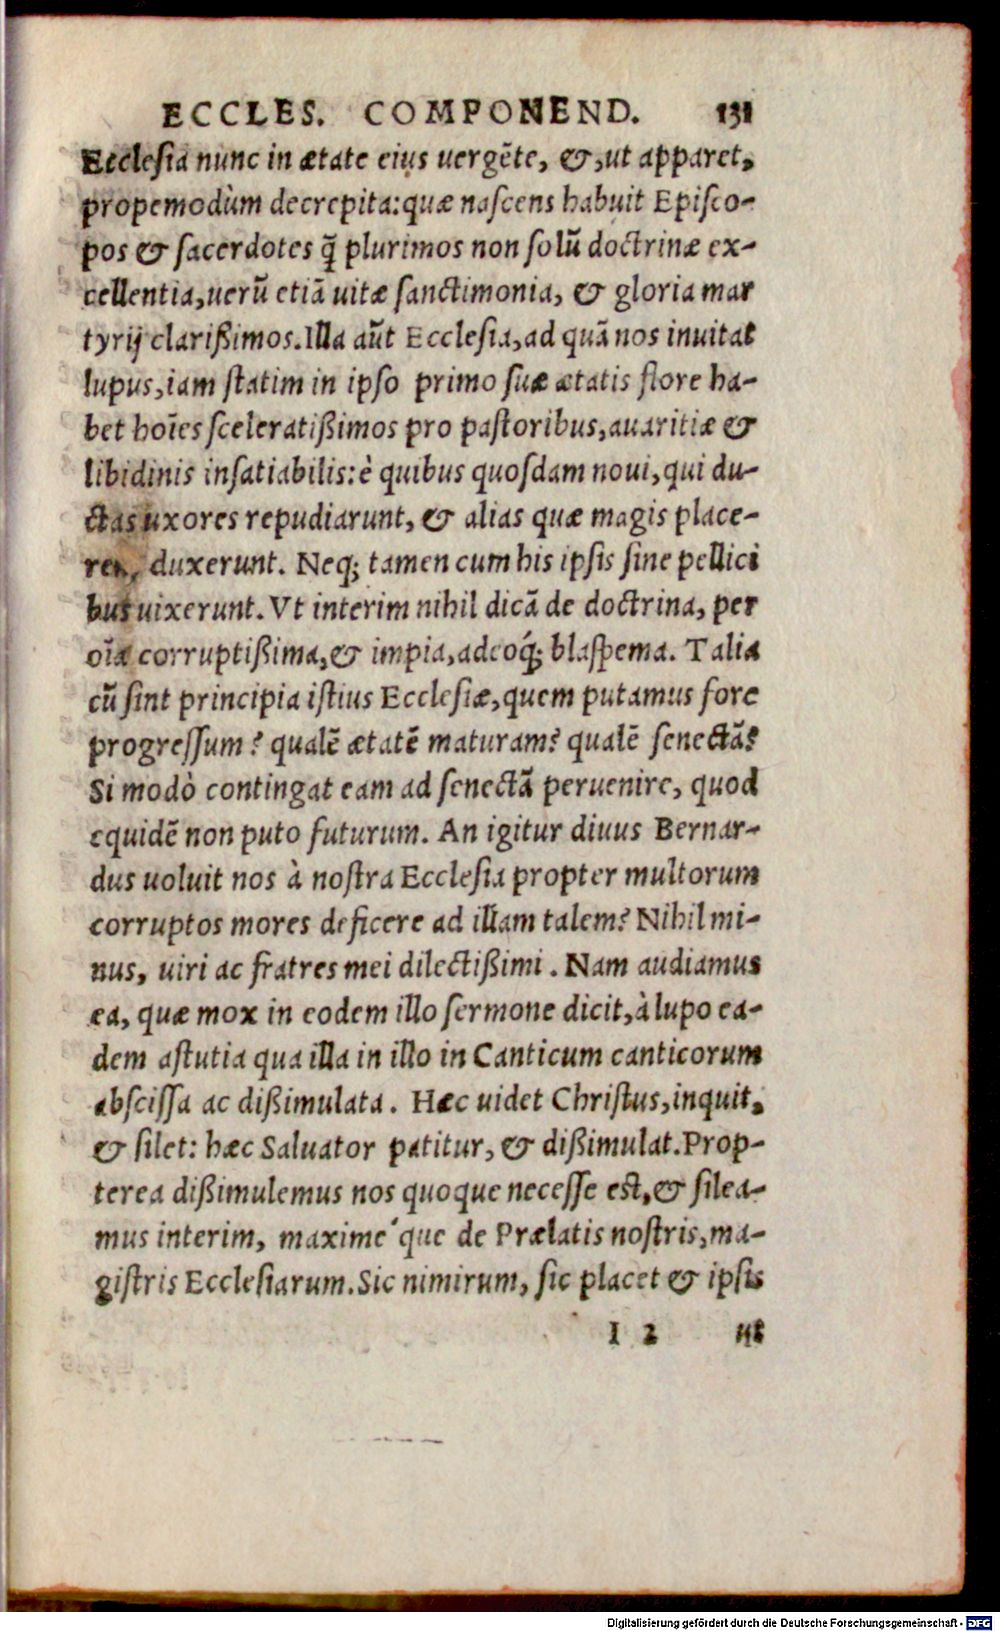 ECCLES. COMPONEND. 131
Ecclesia nunc in ætate eius uergẽte, &, ut apparet,
propemodùm decrepita: quæ nascens habuit Episco-
pos & sacerdotes q̃ plurimos non solũ doctrinæ ex-
cellentia, uerũ etiã uitæ sanctimonia, & gloria mar
tyrij clarißimos. Illa aũt Ecclesia, ad quã nos inuitat
lupus, iam statim in ipso primo suæ ætatis flore ha-
bet hoĩes sceleratißimos pro pastoribus, auaritiæ &
libidinis insatiabilis: è quibus quosdam noui, qui du-
ctas uxores repudiarunt, & alias quæ magis place-
rent, duxerunt. Neq; tamen cum his ipsis sine pellici
bus uixerunt. Vt interim nihil dicã de doctrina, per
oĩa corruptißima, & impia, adeoq́; blaspema. Talia
cũ sint principia istius Ecclesiæ, quem putamus fore
progressum? qualẽ ætatẽ maturam? qualẽ senectã?
Si modò contingat eam ad senectã peruenire, quod
equidẽ non puto futurum. An igitur diuus Bernar-
dus uoluit nos à nostra Ecclesia propter multorum
corruptos mores deficere ad illam talem? Nihil mi-
nus, uiri ac fratres mei dilectißimi. Nam audiamus
ea, quæ mox in eodem illo sermone dicit, à lupo ea-
dem astutia qua illa in illo in Canticum canticorum
abscissa ac dißimulata. Hæc uidet Christus, inquit,
& silet: hæc Saluator patitur, & dißimulat. Prop-
terea dißimulemus nos quoque necesse est, & silea-
mus interim, maximé que de Prælatis nostris, ma-
gistris Ecclesiarum. Sic nimirum, sic placet & ipsis
I 2 ut
Digitalisierung gefördert durch die Deutsche Forschungsgemeinschaft - DFG